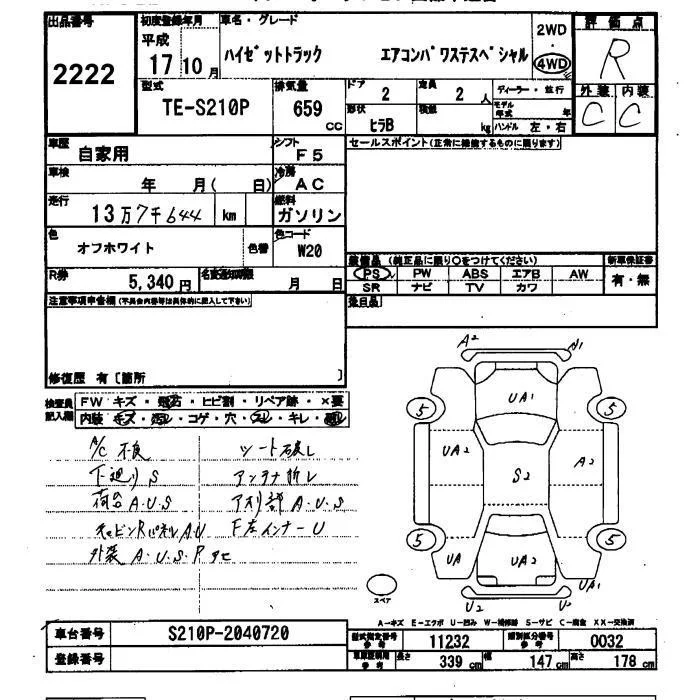 出品番号
2222
初度登録年月
平成
17 10月
車名・グレード
ハイゼットトラック エアコンパワステスペシャル
2WD
4WD
評価点
R
外装 内装
C C
型式
TE-S210P
排気量
659 CC
ドア
2
定員
2人
形状
ヒラB
積載
kg
ディーラー・並行
モデル年式 年
ハンドル 左・右
車歴
自家用
シフト
F5
車検
年 月( 日)
冷房
AC
走行
13万7千644 km
燃料
ガソリン
色
オフホワイト
色替
色コード
W20
R券
5,340円
名変通知期限
月 日
セールスポイント(正常に機能するものに限ります)
装備品 (純正品に限り○をつけてください)
新車保証書
PS PW ABS エアB AW
SR ナビ TV カワ
有・無
注意事項申告欄(不具合内容等は具体的に記入して下さい)
修復歴 有〔箇所 〕
検査員記入欄
FW キズ・飛石・ヒビ割・リペア跡・×要
内装 キズ・汚レ・コゲ・穴・スレ・キレ・
A/C 不良 シート破レ
下廻り S アンテナ折レ
荷台 A.U.S ア刈部 A.U.S
キャビンRパネル A.U F左インナーU
外装 A.U.S.P
A2 A1
UA1
5 5
UA2 S2 A2
5 5
UA UA2 UA1
U2 U2
スペア
A-キズ E-エクボ U-凹み W-補修跡 S-サビ C-腐食 XX-交換済
車台番号
S210P-2040720
登録番号
型式指定番号 参考
11232
類別区分番号 参考
0032
長さ 339 cm
幅 147 cm
高さ 178 cm